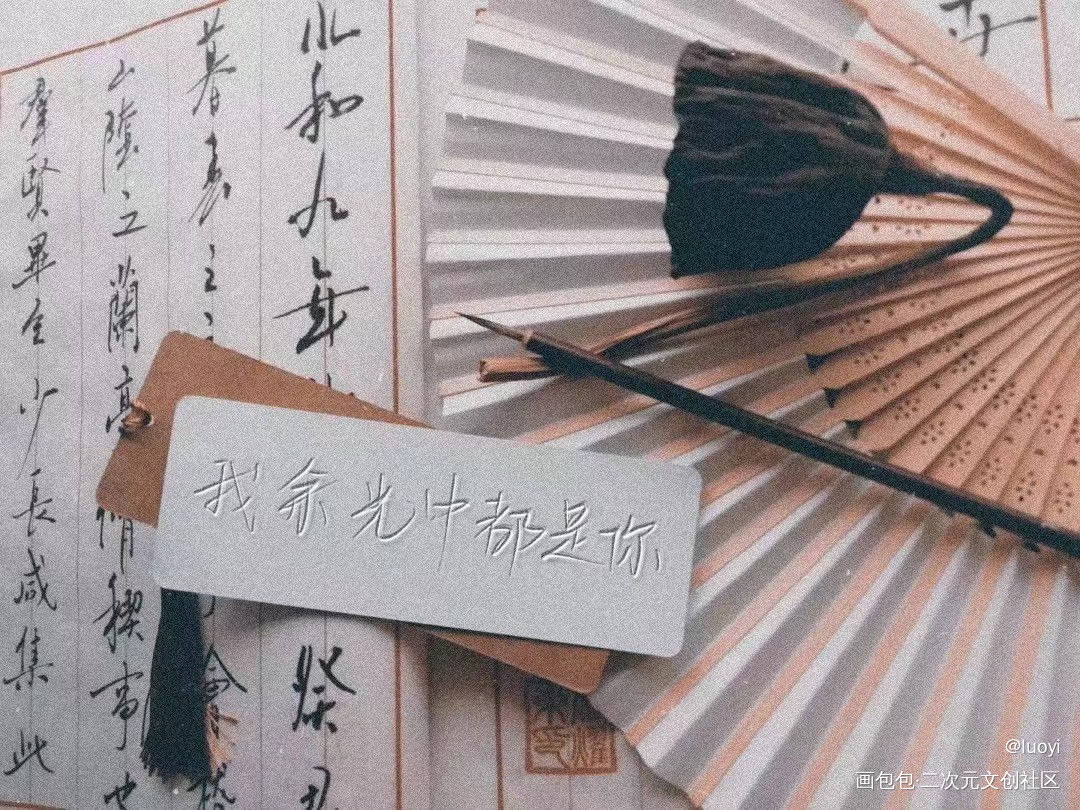 永和九年癸丑
暮春之會稽
山陰之蘭亭脩禊事也
羣賢畢至少長咸集此
我余光中都是你
@luoyi
画包包·二次元文创社区